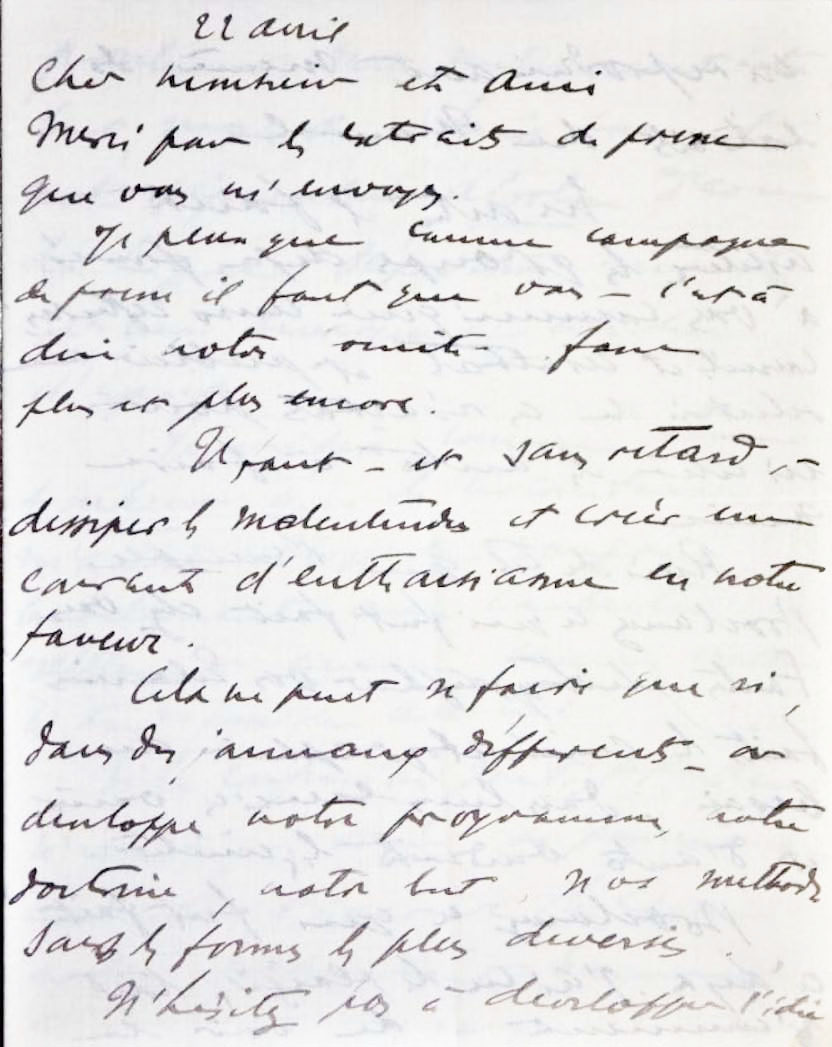 22 avril
Cher monsieur et ami
Merci pour les extraits de presse
que vous m'envoyez.
Je pense que comme campagne
de presse il faut que vous – c'est à
dire notre société fasse
plus et plus encore.
Il faut – et sans retard, –
dissiper les malentendus et créer un
courant d'enthousiasme en notre
faveur.
Cela ne peut se faire que si,
dans des journaux différents – on
développe notre programme, notre
doctrine, notre but, nos méthodes
sous les formes les plus diverses.
N'hésitez pas à développer l'idée